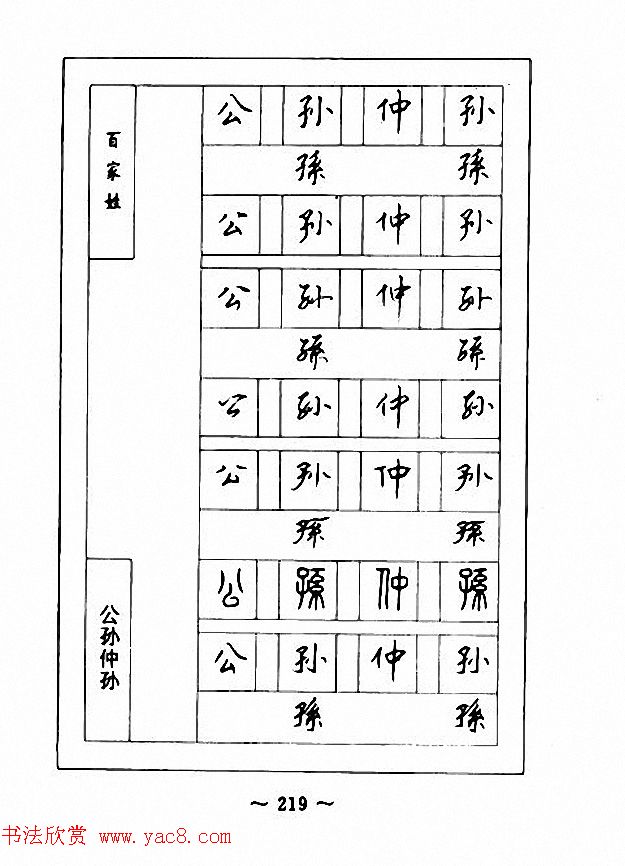 百家姓
公 孙 仲 孙
孫 孫
公 孙 仲 孙
公 孙 仲 孙
孫 孫
公 孙 仲 孙
公 孙 仲 孙
孫 孫
公 孫 仲 孫
公 孙 仲 孙
孫 孫
公孙仲孙
~ 219 ~
书法欣赏 www.yac8.com